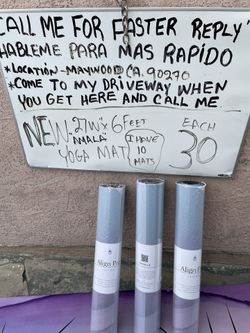 CALL ME FOR FASTER REPLY"
HABLEME PARA MAS RAPIDO
*LOCATION-MAYWOOD CA. 90270
*COME TO MY DRIVEWAY WHEN
YOU GET HERE AND CALL ME.
NEW-27IN x 6 FEET
"AMALA"
YOGA MAT
I HAVE
MATS
EACH
30
Align
Align
Align